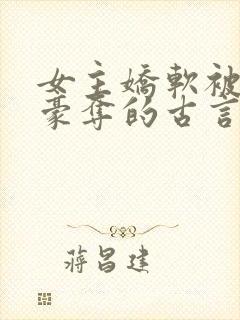 女主嬌軟被
豪奪的古言
蔣昌建